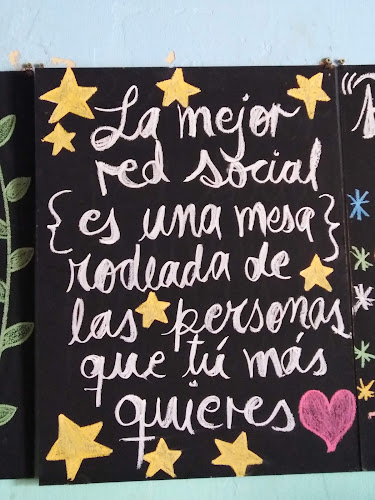 La mejor
red social
{es una mesa}
rodeada de
las personas
que tú más
quieres